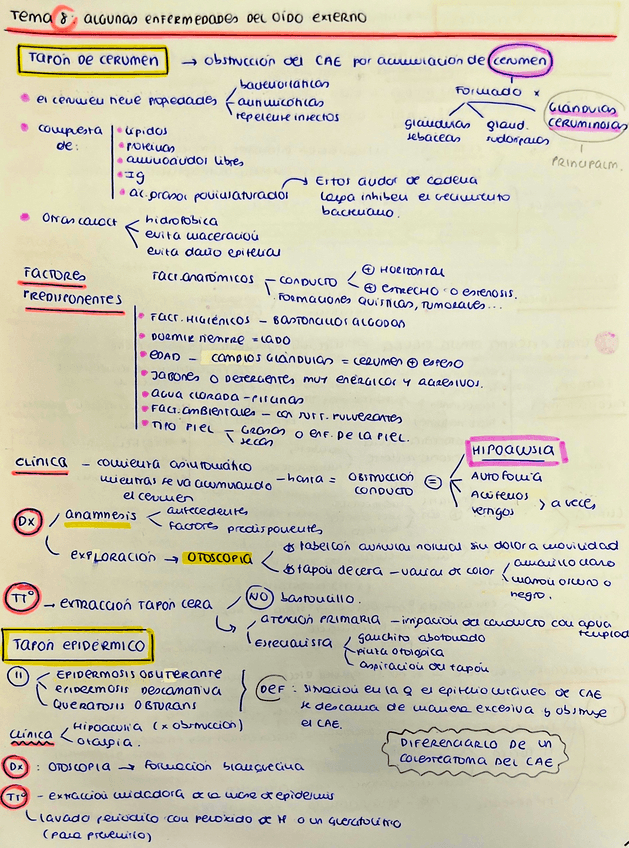 Tema 8: ALGUNAS ENFERMEDADES DEL OÍDO EXTERNO
TAPÓN DE CERUMEN → OBSTRUCCIÓN DEL CAE POR acumulación de cerumen
Formado x
glándulas sebáceas
gland. sudoríparas
GLÁNDULAS CERUMINOSAS
PRINCIPALM.
• el cerumen tiene propiedades
bactericidas
antimicóticas
repelente insectos
• compuesta de:
• lípidos
• proteínas
• aminoácidos libres
• Ig
• ác. grasos poliinsaturados → Estos ácidos de cadena
larga inhiben el crecimiento
bacteriano.
• Otras caract
hidrofóbica
evita maceración
evita daño epitelial
FACTORES
PREDISPONENTES
FACT. ANATÓMICOS
CONDUCTO
⊕ HORIZONTAL
⊕ ESTRECHO O ESTENOSIS.
FORMACIONES QUÍSTICAS, TUMORALES...
• FACT. HIGIÉNICOS - BASTONCILLOS ALGODÓN
• DORMIR SIEMPRE = LADO
• EDAD - CAMBIOS GLÁNDULAS = CERUMEN ⊕ ESPESO
• JABONES O DETERGENTES MUY ENÉRGICOS Y AGRESIVOS.
• AGUA CLORADA - PISCINAS
• FACT. AMBIENTALES - CON SUST. PULVERANTES
• TIPO PIEL
GRASAS O ENF. DE LA PIEL.
secas
CLÍNICA - comienza asintomático
mientras se va acumulando
el cerumen
- hasta = OBSTRUCCIÓN
CONDUCTO
=
HIPOACUSIA
AUTOFONÍA
Acúfenos
vértigos
> a veces
Dx
anamnesis
antecedentes
factores predisponentes
EXPLORACIÓN → OTOSCOPIA
$ tabelcón auricular normal sin dolor a movilidad
$ tapón de cera - varía de color
amarillo claro
marrón oscuro o
negro.
TTº → EXTRACCIÓN TAPÓN CERA
NO bastoncillo.
ATENCIÓN PRIMARIA - irrigación del conducto con agua
templada
Especialista
ganchito abotonado
pinza otológica
aspiración del tapón
TAPÓN EPIDÉRMICO
=
EPIDERMOSIS OBLITERANTE
EPIDERMOSIS DESCAMATIVA
QUERATOSIS OBTURANS
DEF: Situación en la q el epitelio cutáneo de CAE
se descama de manera excesiva y obstruye
el CAE.
Clínica
HIPOACUSIA (x obstrucción)
Otalgia.
DIFERENCIARLO DE UN
COLESTEATOMA DEL CAE
Dx: OTOSCOPIA → formación blanquecina
TTº - extracción cuidadosa de la masa de epidermis
lavado periódico con peróxido de H o un queratolítico
(para prevenirlo)